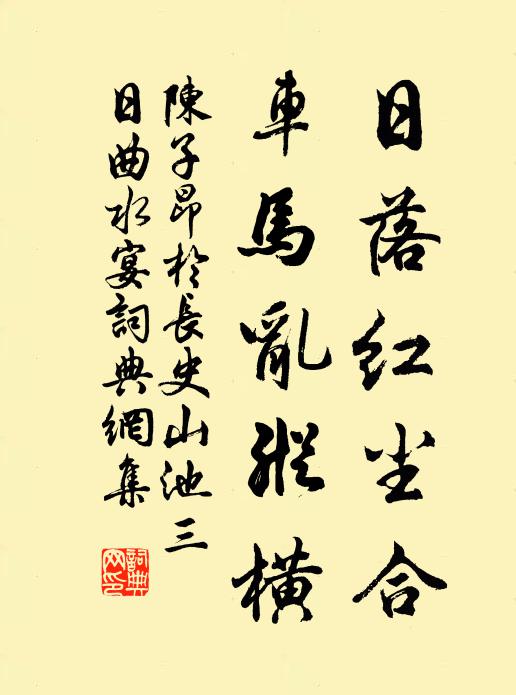 日落红尘合
車馬亂縱橫
陳子昂於長史山池三
日曲水宴詞典網集
詞典
网印